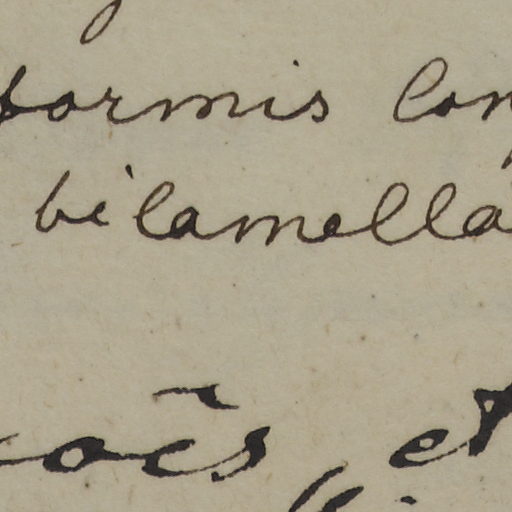 formis lon
bilamella
ções, et